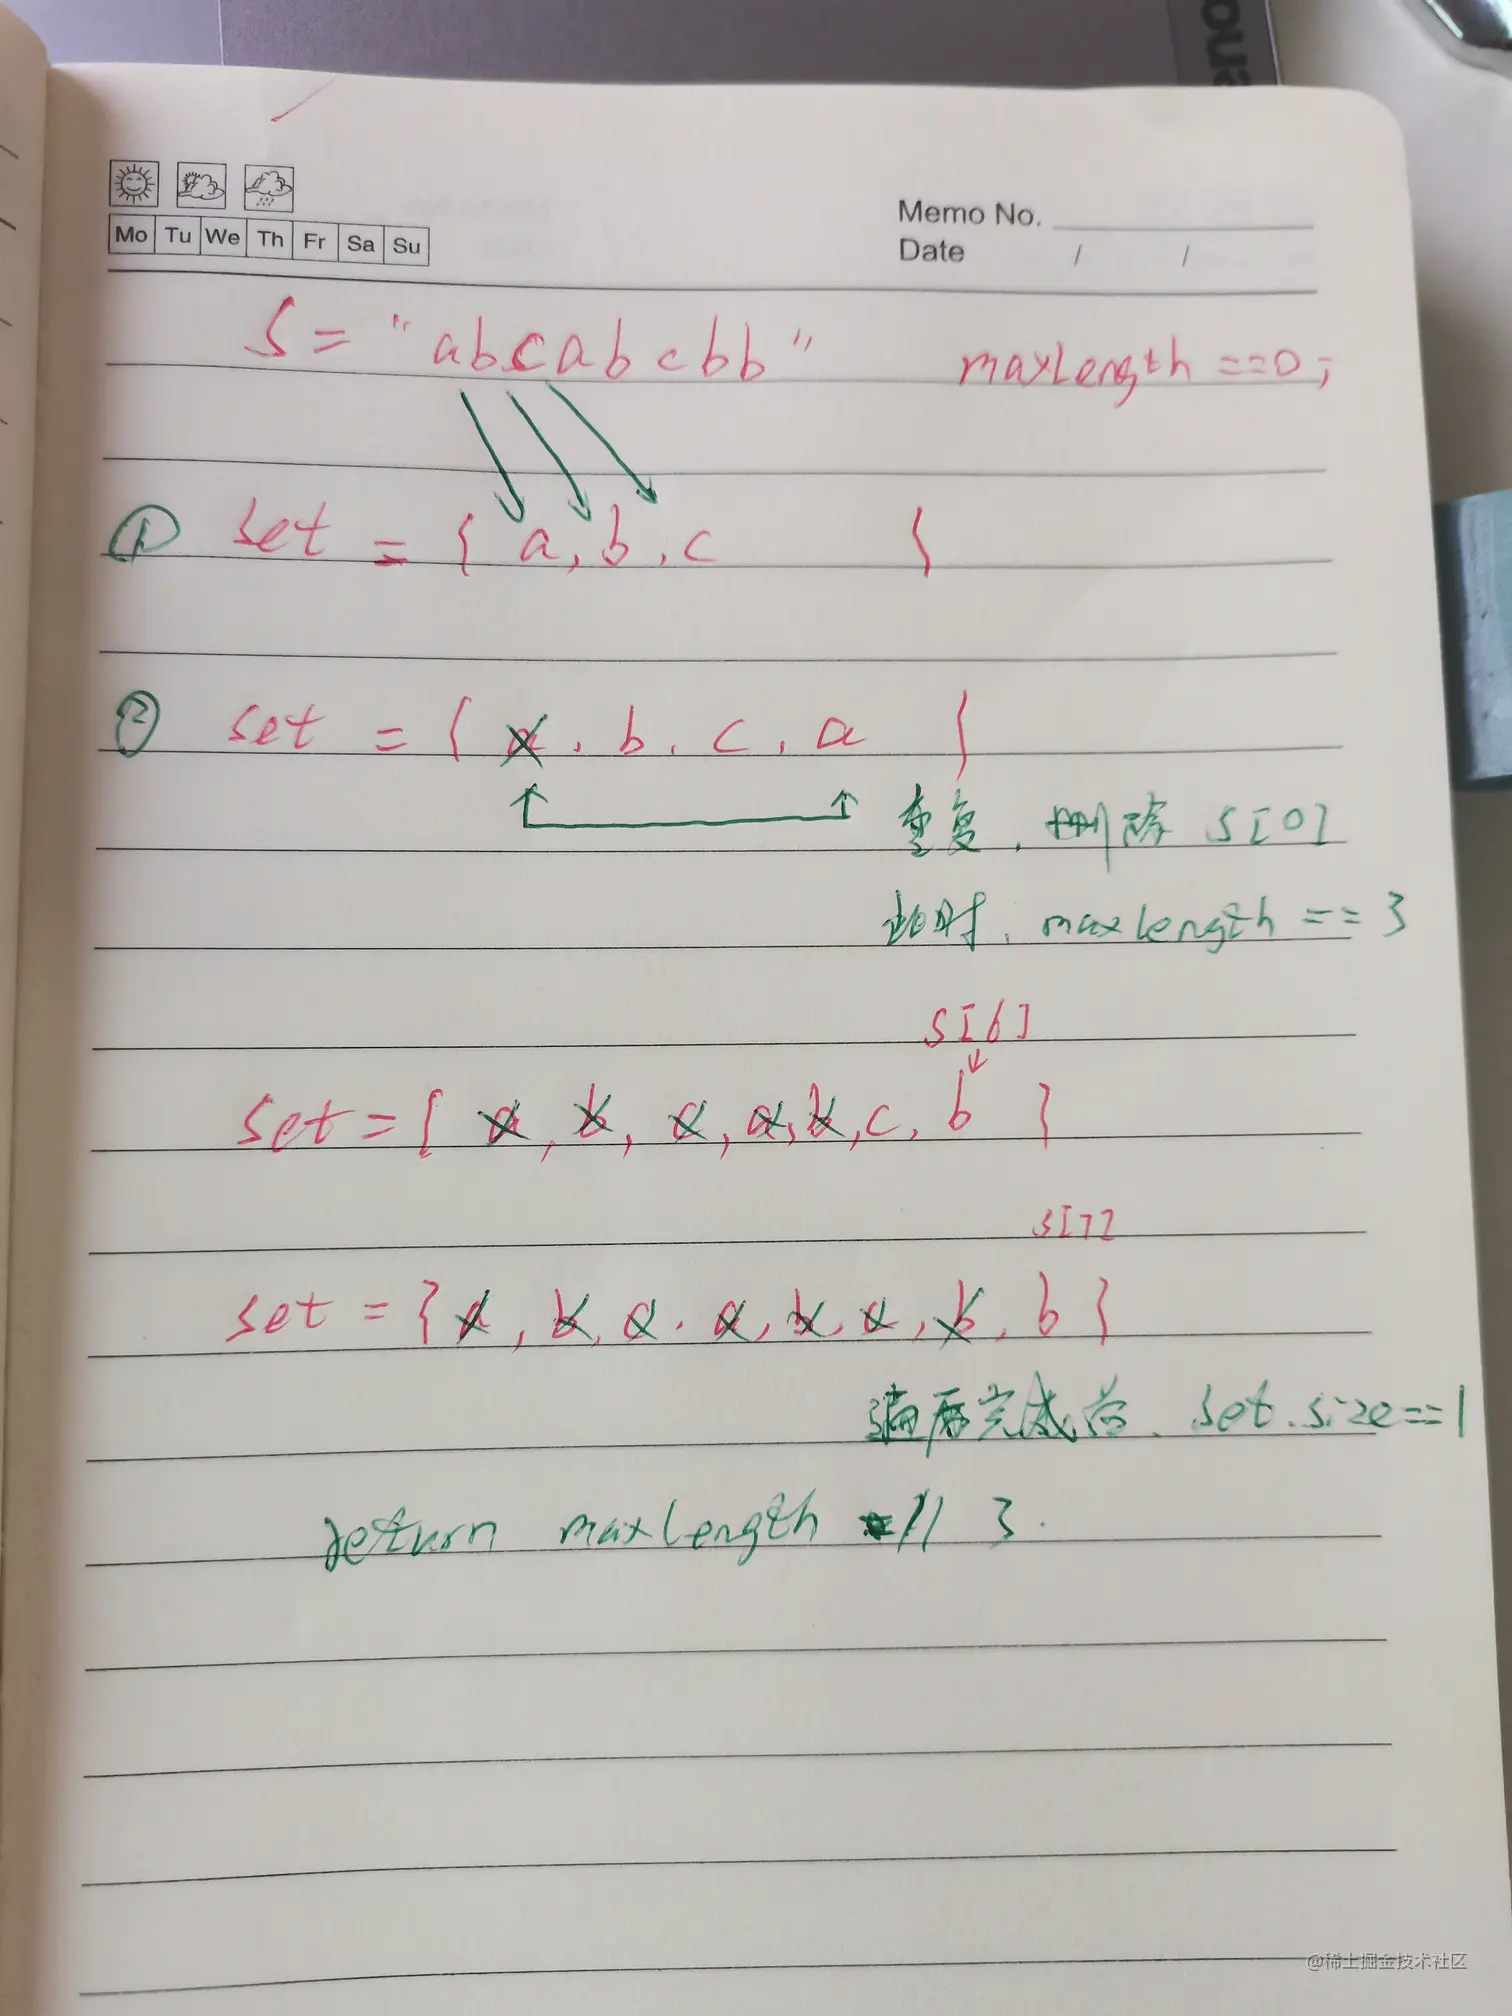 enov
Mo Tu We Th Fr Sa Su
Memo No.
Date / /
S = "abcabcbb" maxLength ==0;
① set = { a, b, c }
② set = { a, b, c, a }
重复, 删除 S[0]
此时, maxLength == 3
S[6]
set = { a, b, c, a, b, c, b }
S[7]
set = { a, b, c, a, b, c, b, b }
遍历完成后, set.size==1
return maxLength // 3.
@稀土掘金技术社区